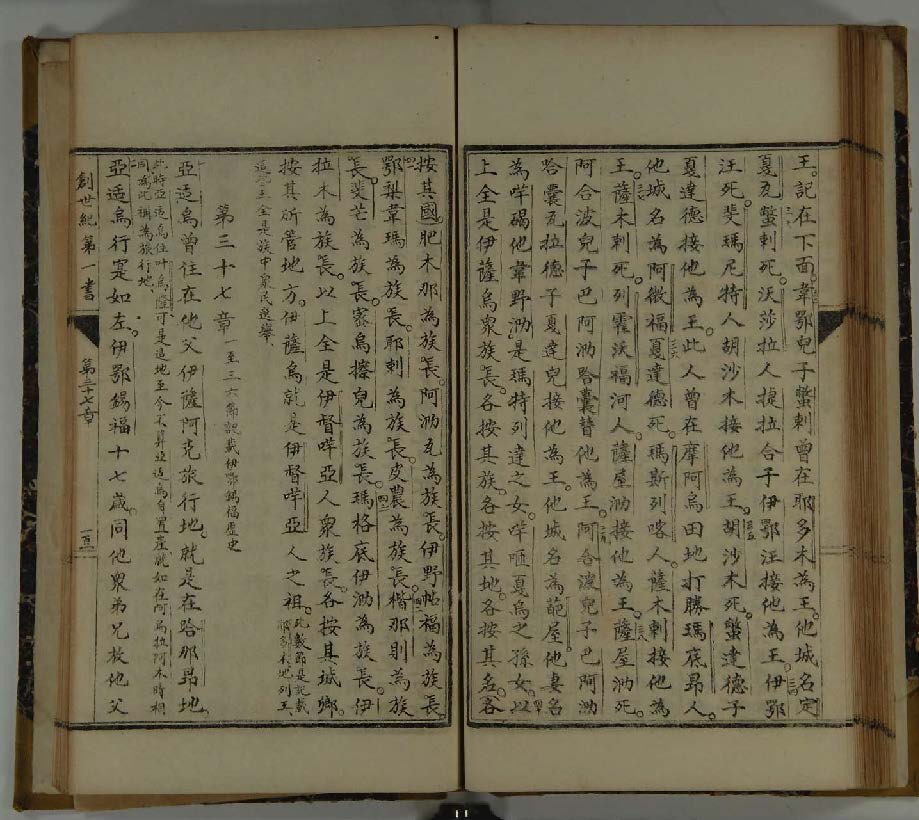 王。記在下面。韋鄂兒子蟞剌曾在耶多木為王。他城名定
夏瓦。蟞剌死。沃莎拉人捷拉合子伊鄂汪接他為王。伊鄂
汪死。斐瑪尼特人胡沙木接他為王。胡沙木死。蟞達德子
夏達德接他為王。此人曾在摩阿烏田地打勝瑪底昂人。
他城名為阿微福。夏達德死。瑪斯列喀人薩木剌接他為
王。薩木剌死。列霍沃福河人薩屋泐接他為王。薩屋泐死。
阿合波兒子巴阿泐哈囊替他為王。阿合波兒子巴阿泐
哈囊瓦拉德子夏達兒接他為王。他城名為葩屋。他妻名
為哶碣他韋野泐。是瑪特列達之女。哶咂夏烏之孫女。以
上全是伊薩烏眾族長。各按其族。各按其地。各按其名。各
按其國。肥木那為族長。阿泐瓦為族長。伊野帖福為族長。
鄂梨韋瑪為族長。耶剌為族長。皮農為族長。楷那則為族
長。斐芒為族長。密烏擦兒為族長。瑪格底伊泐為族長。伊
拉木為族長。以上全是伊督哶亞人眾族長。各按其城鄉。
按其所管地方。伊薩烏就是伊督哶亞人之祖。此數節是記載耶多木地列王。
這列王全是族中眾民選舉、
第三十七章 一至三六節記載伊鄂錫福歷史
亞适烏曾住在他父伊薩阿克旅行地。就是在哈那昂地。
此時亞适烏住
同、為此稱為旅行地、
亞适烏行寔如左。伊鄂錫福十七歲。同他眾弟兄放他父
創世紀第一書
第三十七章